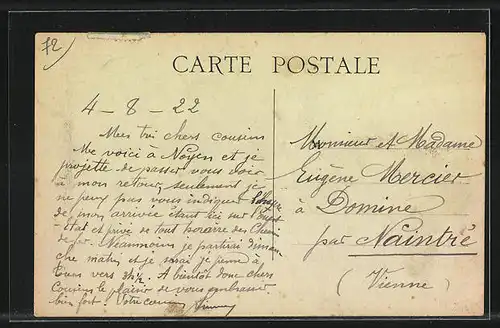 72
CARTE POSTALE
4 - 8 - 22
Mes très chers cousins
Me voici à Noyen et je
projette de passer vous voir
à mon retour, seulement je
ne peux pas vous indiquer l'heure
de mon arrivée étant ici sur l'Ouest
-Etat et privé de tout horaire des Chemins
de fer. Néanmoins je partirai diman
che matin et je serai je pense à
vers 3h½. A bientôt donc chers
Cousins le plaisir de vous embrasser
bien fort Votre cousin
Monsieur et Madame
Eugène Mercier
à Domine
par Naintré
(Vienne)